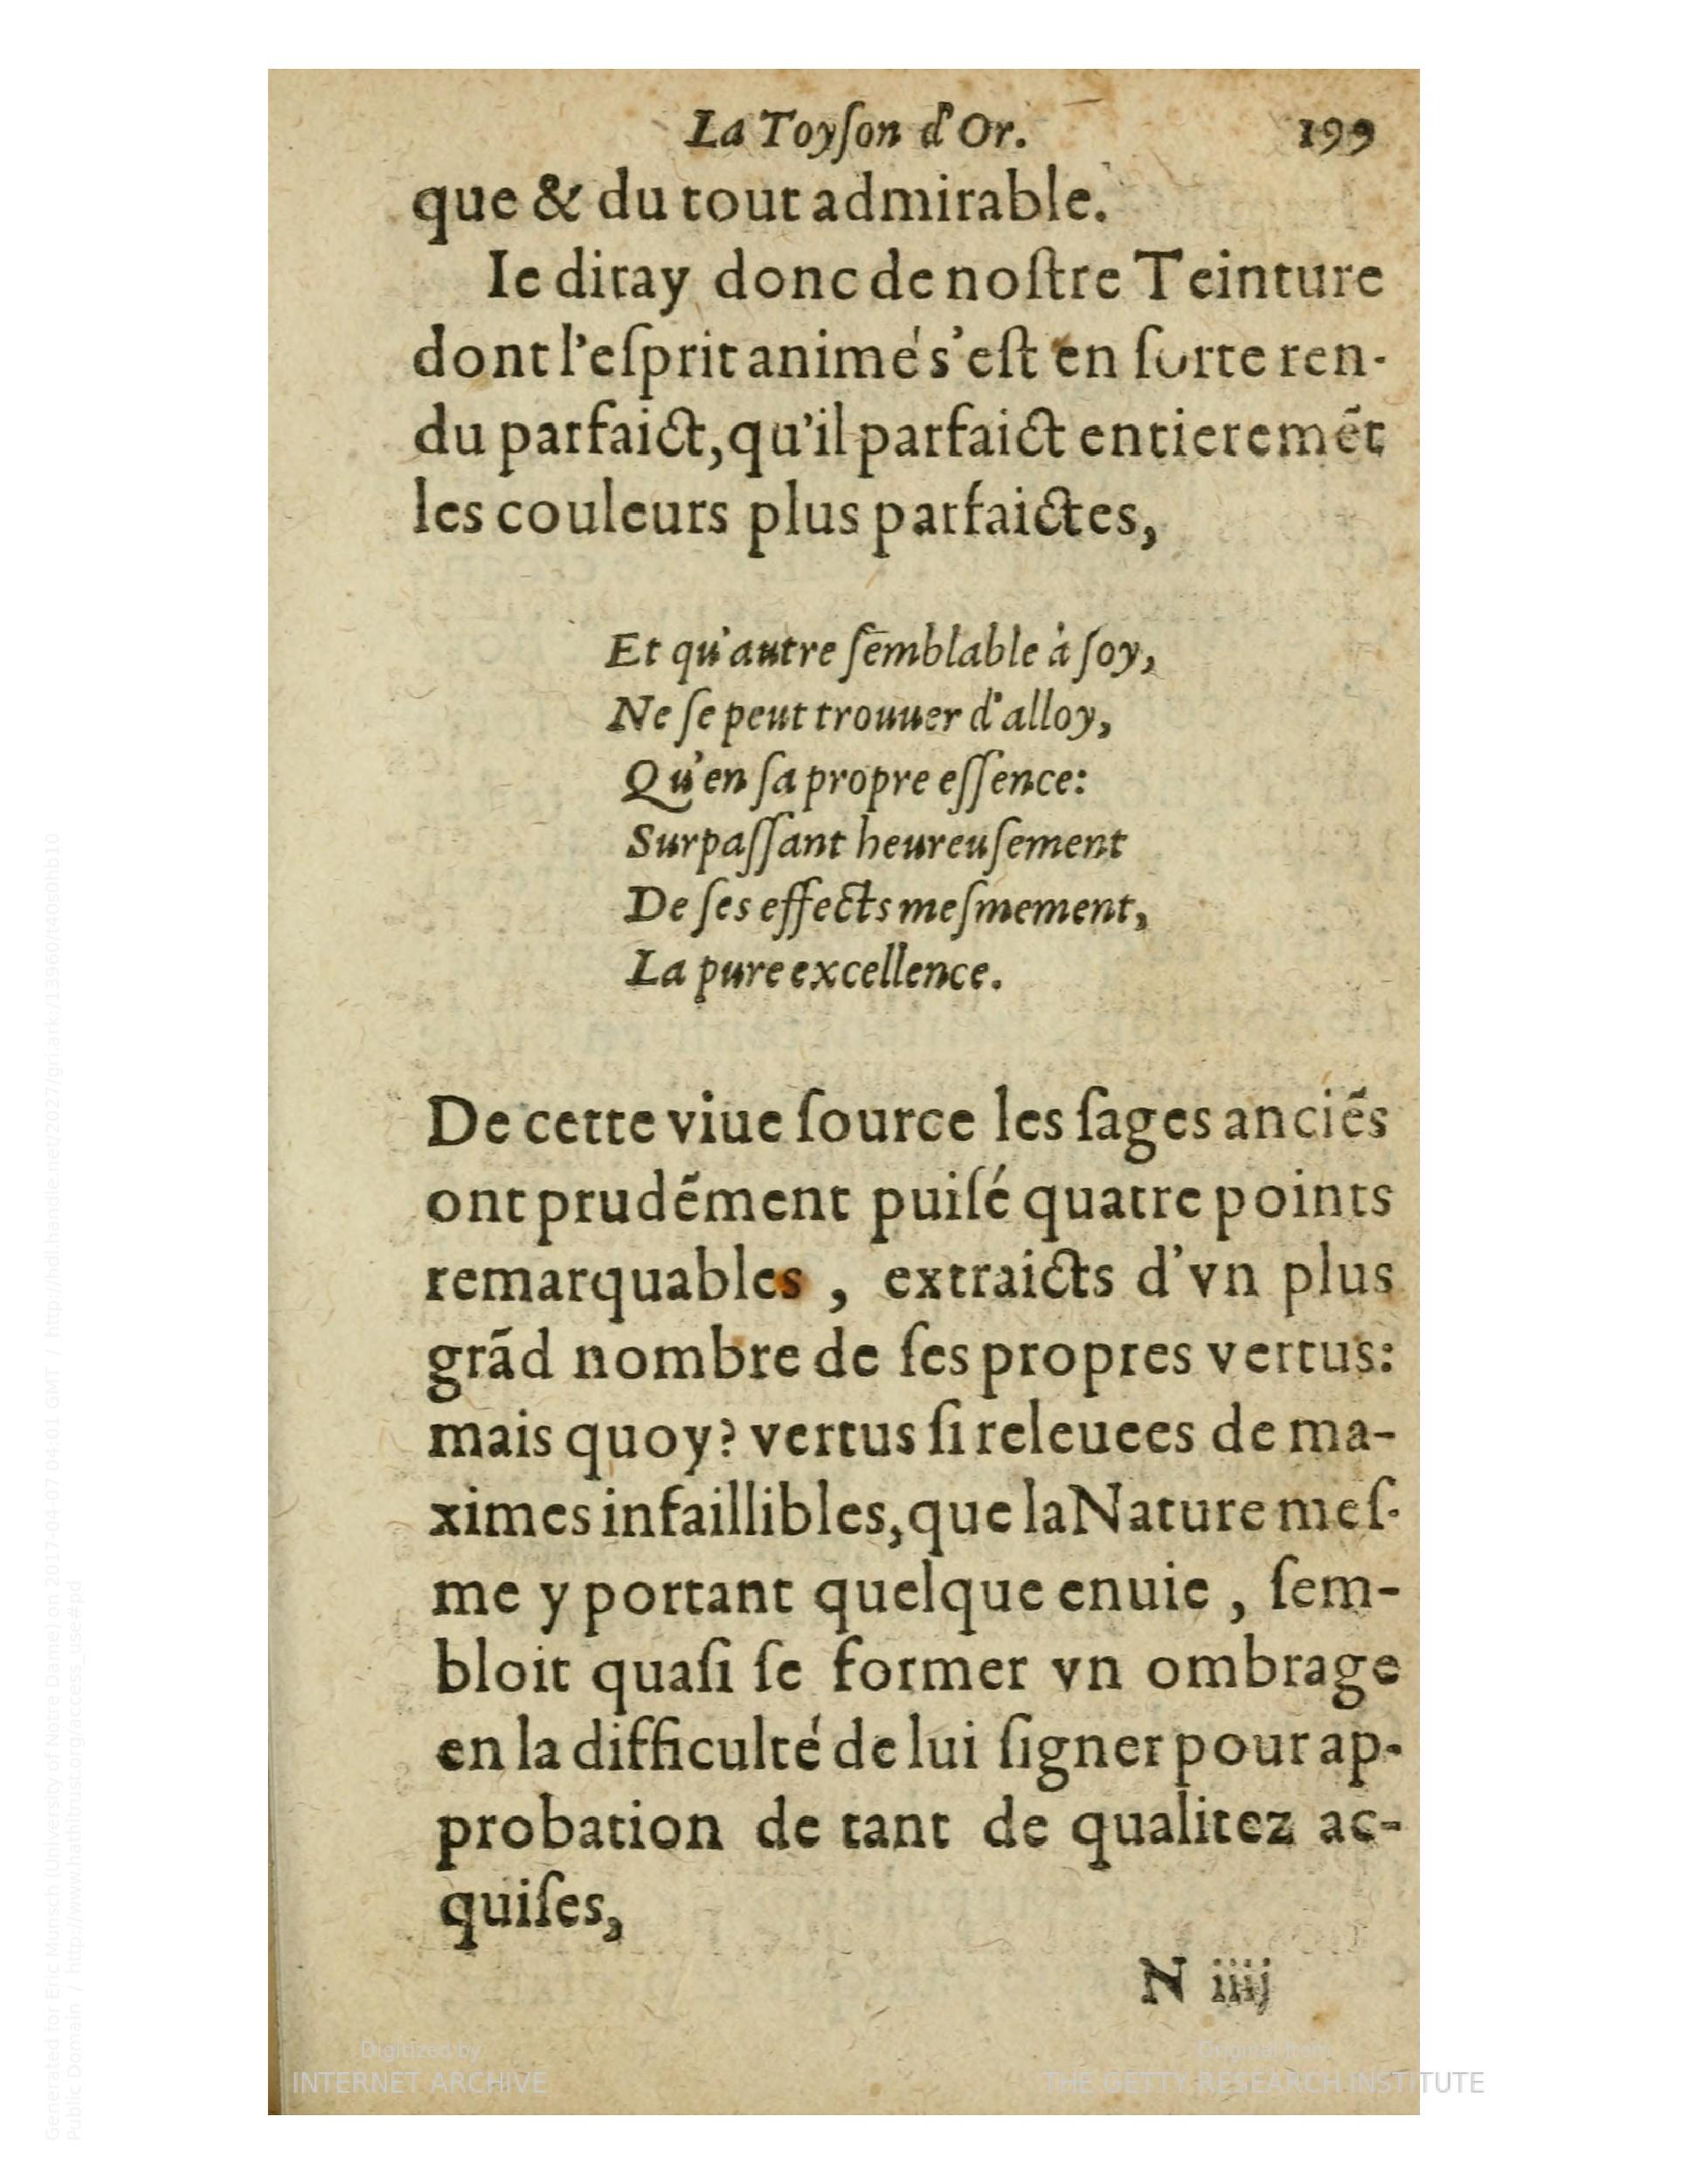 La Toyſon d'Or. 199
que & du tout admirable.
Ie diray donc de noſtre Teinture
dont l'eſprit animé s'eſt en ſorte ren-
du parfaict, qu'il parfaict entieremẽt
les couleurs plus parfaictes,
Et qu'autre ſemblable à ſoy,
Ne ſe peut trouuer d'alloy,
Qu'en ſa propre eſſence:
Surpaſſant heureuſement
De ſes effects meſmement,
La pure excellence.
De cette viue ſource les ſages anciẽs
ont prudẽment puiſé quatre points
remarquables, extraicts d'vn plus
grãd nombre de ſes propres vertus:
mais quoy? vertus ſi releuees de ma-
ximes infaillibles, que la Nature meſ-
me y portant quelque enuie, ſem-
bloit quaſi ſe former vn ombrage
en la difficulté de lui ſigner pour ap-
probation de tant de qualitez ac-
quiſes,
N iiij
Digitized by
INTERNET ARCHIVE
Original from
THE GETTY RESEARCH INSTITUTE
Generated for Eric Munsch (University of Notre Dame) on 2017-04-07 04:01 GMT / http://hdl.handle.net/2027/gri.ark:/13960/t40s0hb10
Public Domain / http://www.hathitrust.org/access_use#pd